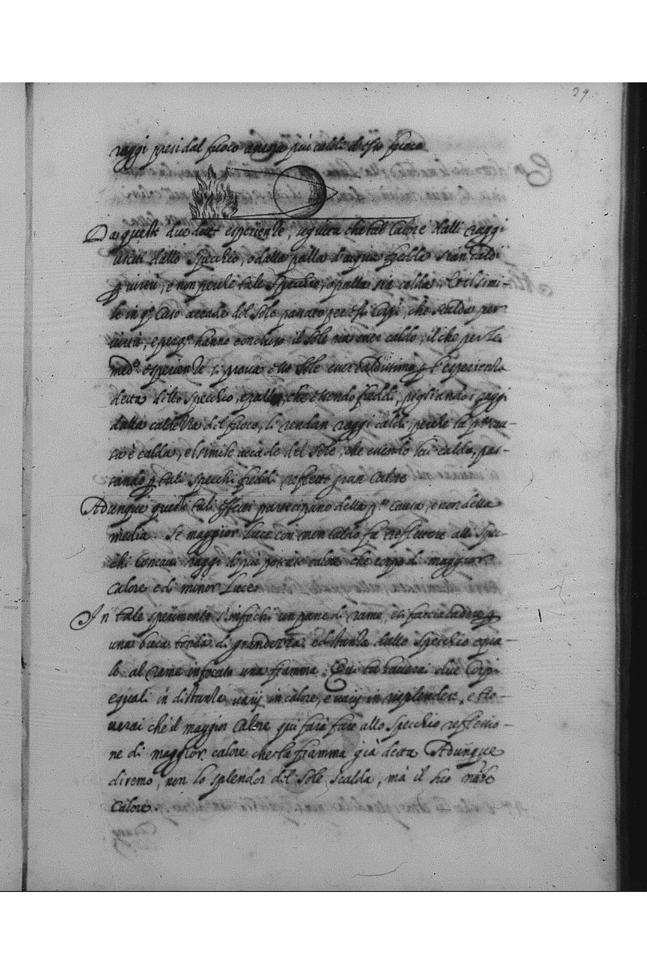 29
raggi presi dal fuoco assai più caldi di esso fuoco
Da queste due dette esperienze, seguita che tal Calore delli raggi
usciti dallo specchio, o dalla palla d'acqua fredda sian caldi
p virtù, e non perche tale specchio, o palla sia calda; Et il simi-
le in qº Caso accade del Sole passato per essi Corpi, che scalda per
virtù, e pº hanno concluso il Sole non esser caldo, il che per la
medª esperienza si prova esso Sole esser caldissimo p l'esperienza
detta dello specchio, e palla, che essendo freddi, pigliando i raggi
dalla caldezza del fuoco, li rendan raggi caldi, perche la pª cau-
sa è calda, el simile accade del Sole, che essendo lui caldo, pas-
sando p tali specchi freddi reflette gran calore
Adunque questi tali effetti partecipano della pª causa, e non della
media. Se maggior luce con men caldo fa reflettere alli spe-
chi concavi raggi di più potente calore che corpo di maggior
calore e di minor luce
In tale sperimento s'infochi un pane di rame, e si faccia vedere p
una buca tonda di grandezza, e distanza dallo specchio equa-
le al rame infocato una fiamma. Qui tu haverai due Corpi
equali in distanza, varij in calore, e varij in risplendere, e tro-
verai che'l maggior Calore qui farà fare allo specchio reflessio-
ne di maggior calore che la fiamma già detta Adunque
diremo, non lo splendor del Sole scalda, ma il suo natle
Calore.